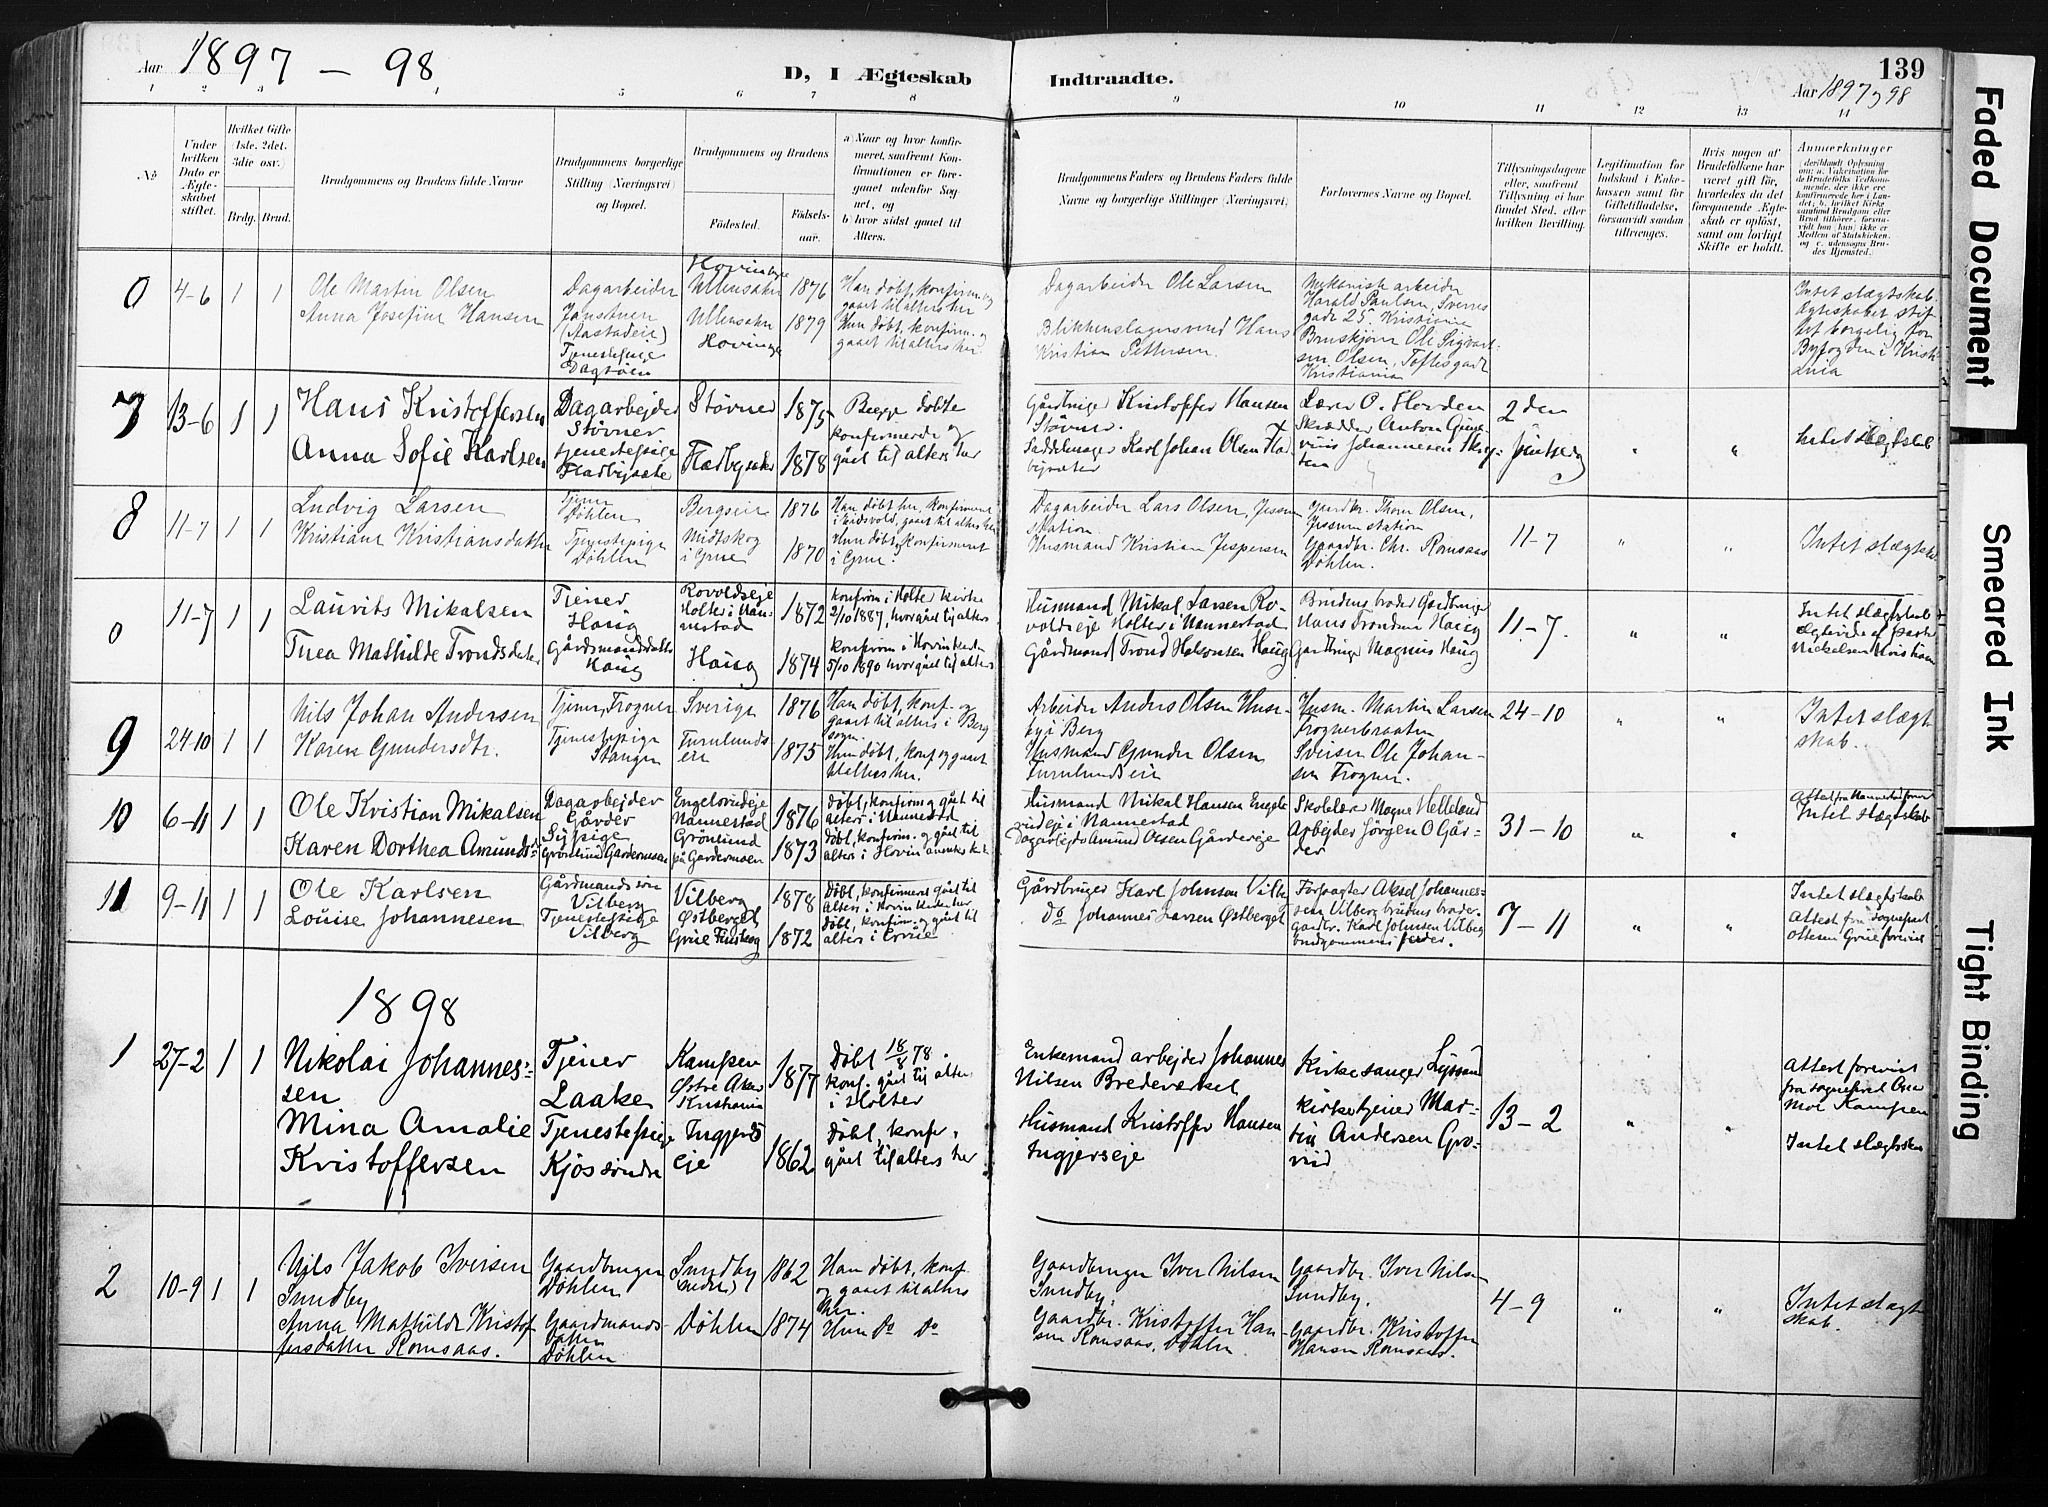 Aar 1897 – 98
D, I Ægteskab
Indtraadte.
139
Aar 1897 98
1 2 3 4 5 6 7 8 9 10 11 12 13 14
No
Under hvilken Dato er Ægteskabet stiftet.
Hvilket Gifte (1ste. 2det. 3die osv.)
Brdg. Brud.
Brudgommens og Brudens fulde Navne
Brudgommens borgerlige Stilling (Næringsvei) og Bopæl.
Brudgommens og Brudens
Fødested.
Fødselsaar.
a) Naar og hvor konfirmeret, saafremt Konfirmationen er foregaaet udenfor Sognet, og
b) hvor sidst gaaet til Alters.
Brudgommens Faders og Brudens Faders fulde Navne og borgerlige Stillinger (Næringsvei)
Forlovernes Navne og Bopæl.
Tillysningsdagene eller, saafremt Tillysning ei har fundet Sted, efter hvilken Bevilling.
Legitimation for Indskud i Enkekassen samt for Giftetilladelse, forsaavidt saadan tiltrænges.
Hvis nogen af Brudefolkene har været gift før, hvorledes da det foregaaende Ægteskab er opløst, samt om lovligt Skifte er holdt.
Anmærkninger
0
4-6 1 1
Ole Martin Olsen
Anna Josefine Hansen
Dagarbeider
Tjenestepige
Ullensaker
Ullensaker
1876
1879
Han døbt, konfirm. og
gaaet til alters her
Hun døbt, konfirm. og
gaaet til alters her.
Dagarbeider Ole Larsen
Blikkenslagersvend Hans
Kristian Pettersen.
Mekanisk arbeider
Harald Paulsen, Sverres
gade 25 Kristiania
Olsen, Toftesgade
Kristiania
Intet slægtskab.
7
13-6 1 1
Hans Kristoffersen
Anna Sofie Karlsen
Dagarbejder
Støvner
tjenestepige
Støvner
1875
1878
Begge døbte
konfirmerede og
gået til alters her
Gårdbruger Kristoffer Hansen
Støvner
Saddelmager Karl Johan Olsen
Lærer O. Horden
Skrædder Anton
Johannesen
2den
Intet slægtskab
8
11-7 1 1
Ludvig Larsen
Kristiane Kristiansdatter
Tjener
Døhlen
Tjenestepige
Døhlen
Midtskog
i Grue
1876
1870
Han døbt her, konfirmeret
i Eidsvold, gaaet til alters her
Hun døbt, konfirmeret
i Grue.
Dagarbeider Lars Olsen, Jessum
station
Husmand Kristian Jespersen
Gaardbr. Thom Olsen,
Jessum station
Gaardbr. Chr. Romsaas
Døhlen.
11-7
"
"
Intet slægtsk.
0
11-7 1 1
Laurits Mikalsen
Thea Mathilde Trondsdatter
Tjener
Haug
Gårdmandsdatter
Haug
Holter i Nannestad
Haug
1872
1874
konfirm i Holter kirke
2/10 1887, hvor gået til alters
konfirm i Hovin kirke
5/10 1890 hvor gået til alters
Husmand Mikal Larsen Ro-
voldseje Holter i Nannestad
Gårdmand Trond Halvorsen Haug
Brudens broder Gårdbruger
Hans Trondsen Haug
Gårdbruger Magnus Haug
11-7.
"
"
Intet slægtskab
9
24-10 1 1
Nils Johan Andersen
Karen Gundersdtr.
Tjener, Frogner
Tjenestepige
Stangen
Sverige
Furulunds
eie
1876
1875
Han døbt, konf. og
gaaet til alters i Berg
sogn.
Hun døbt, konf og gaaet
til alters her.
Arbeider Anders Olsen
i Berg
Husmand Gunder Olsen
Furulundseie
Husm. Martin Larsen
Frognerbraaten
Sveiser Ole Johan-
sen Frogner.
24-10
"
"
Intet slægt
skab.
10
6-11 1 1
Ole Kristian Mikalsen
Karen Dorthea Amundsdr
Dagarbejder
Gårder
Sypige
Grønlund Gardermoen
Engelsrudeje
Nannestad
Grønlund
på Gardermoen
1876
1873
Døbt, konfirm og gået til
alters i Nannestad
Døbt, konfirm. og gået til
alters i Hovin
Husmand Mikal Hansen Engels
rudeje i Nannestad
Dagarbejder Amund Olsen Gårdereje
Skolelærer Mogne Helleland
Arbejder Jörgen O Går-
der
31-10
"
"
Intet slægtskab
11
9-11 1 1
Ole Karlsen
Louise Johannesen
Gårdmandssøn
Vilberg
Tjenestepige
Vilberg
Vilberg
Østberget
Grue Finskog
1878
1872
Døbt, konfirmeret gået til
alters i Hovin kirke her
Døbt, konfirm. og gået til
alters i Grue
Gårdbruger Karl Johnsen Vilberg
do Johannes Larsen Østberget
Forpagter Aksel Johannes-
sen Vilberg brudens broder.
Gårdbr. Karl Johnsen Vilberg
brudgommens fader.
7-11
"
"
Intet slægtskab
Attest fra Sognepræst
Ottesen Grue forevist
1898
1
27-2 1 1
Nikolai Johannes-
sen
Mina Amalie
Kristoffersen
Tjener
Laake
Tjenestepige
Kjos søndre
Kampen
Østre Aker
Kristiania
Ingjers
eje
1877
1862
Døbt 18/8 78.
konf. gået til alter
i Holter
Døbt, konfr,
gået til alters her
Enkemand arbejder Johannes
Nilsen Bredeværket
Husmand Kristoffer Hansen
Ingjerseje
Kirkesanger
kirketjener Mar-
tin Andersen
13-2
"
"
Attest forevist
fra sognepræst
Kampen
Intet slægtskab
2
10-9 1 1
Nils Jakob Iversen
Sundby
Anna Mathilde Kristof
fersdatter Romsaas.
Gaardbruger
Døhlen
Gaardmands-
datter
Døhlen
Sundby
(nedre)
Døhlen
1862
1874
Han døbt, konf.
og gaaet til alters
her.
Hun Do Do
Gaardbruger Iver Nilsen
Sundby,
Gaardbr. Kristoffer Han-
sen Romsaas, Døhlen.
Gaardbr. Iver Nilsen
Sundby.
Gaardbr. Kristoffer
Hansen Romsaas.
4-9
"
"
Intet slægt
skab.
Faded Document
Smeared Ink
Tight Binding